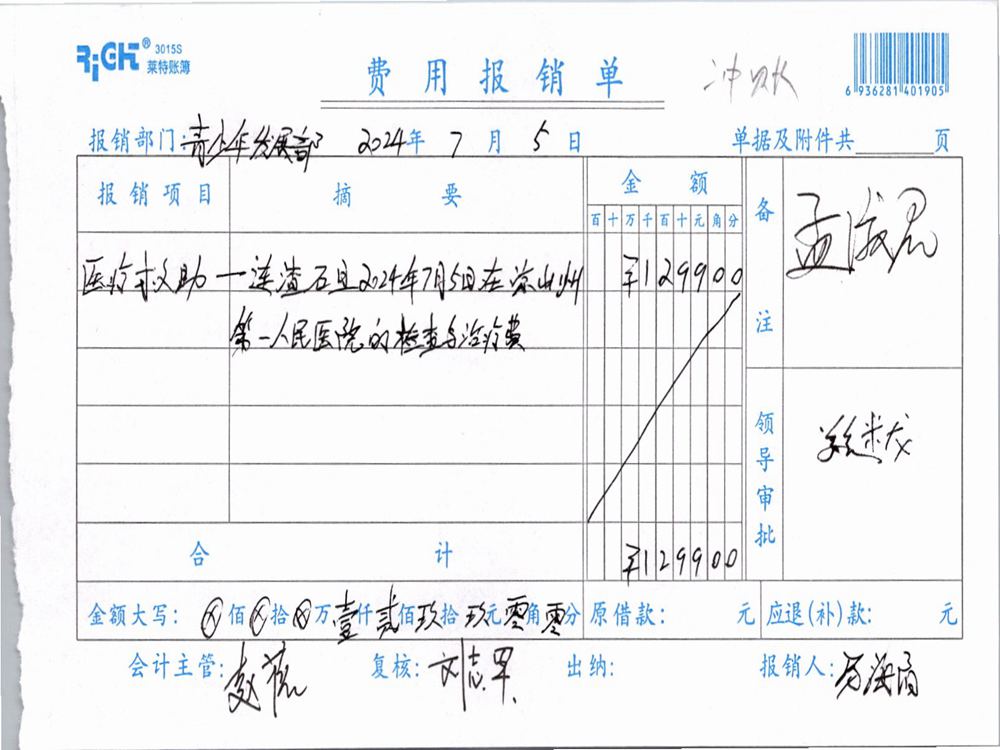 RiGHT® 3015S
莱特账簿
费用报销单
冲账
6 936281 401905
报销部门:青少年发展部 2024年 7 月 5 日 单据及附件共 页
报销项目 摘 要 金 额 备注
百 十 万 千 百 十 元 角 分
医疗救助 一连渣石旦2024年7月5日在凉山州 ¥129900
第一人民医院的检查与治疗费
领导审批
合 计 ¥129900
金额大写: ⊗佰⊗拾⊗万壹仟贰佰玖拾玖元零角零分 原借款: 元 应退(补)款: 元
会计主管: 复核: 出纳: 报销人: